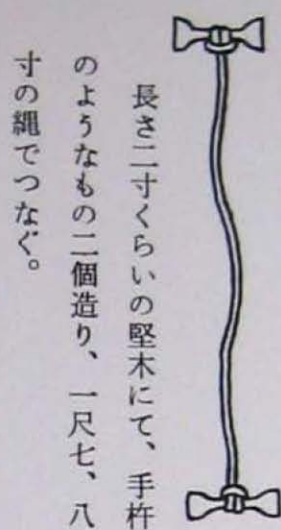 長さ二寸くらいの堅木にて、手杵
のようなもの二個造り、一尺七、八
寸の縄でつなぐ。